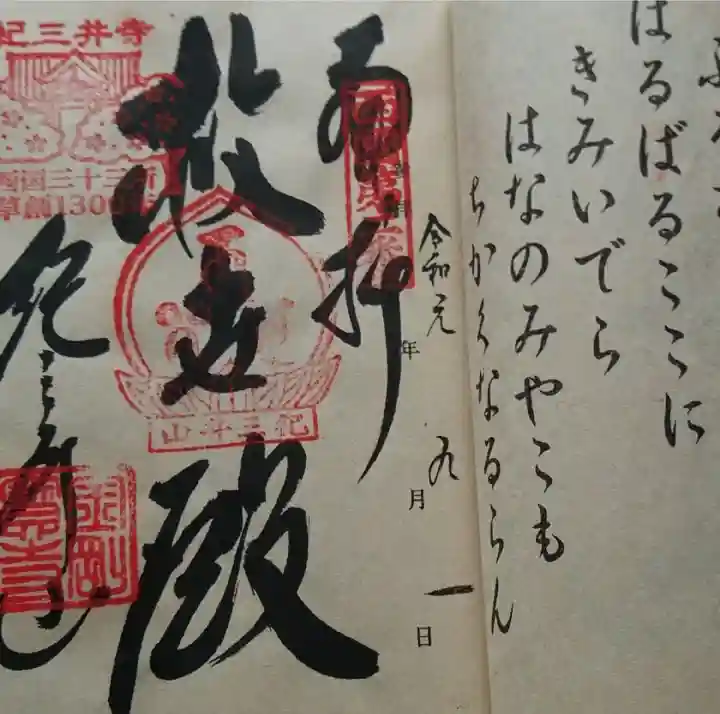 はるばるここに
きみいでら
はなのみやこも
ちかくなるらん
令和元年九月一日
奉拝
救世殿
山井三紀
紀三井寺
西国三十三所
草創1300
紀三井寺